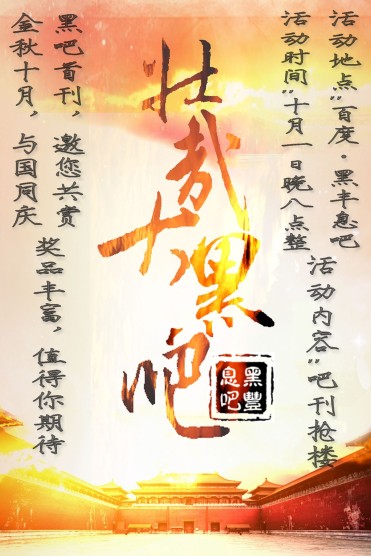 活动地点：百度·黑丰息吧
活动时间：十月一日晚八点整
活动内容：吧刊抢楼
壮哉大黑吧
黑豐
息吧
黑吧首刊，邀您共赏
金秋十月，与国同庆
奖品丰富，值得你期待